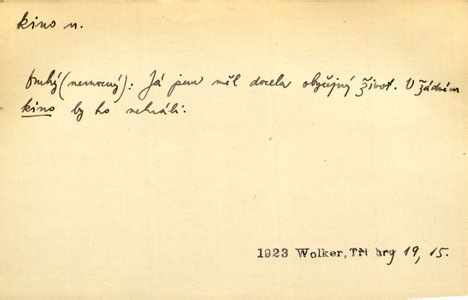 kino n.
Druhý (nemocný): Já jsem měl docela obyčejný život. V žádném
kino by ho nehráli.
1923 Wolker, Tři hry 19, 15.